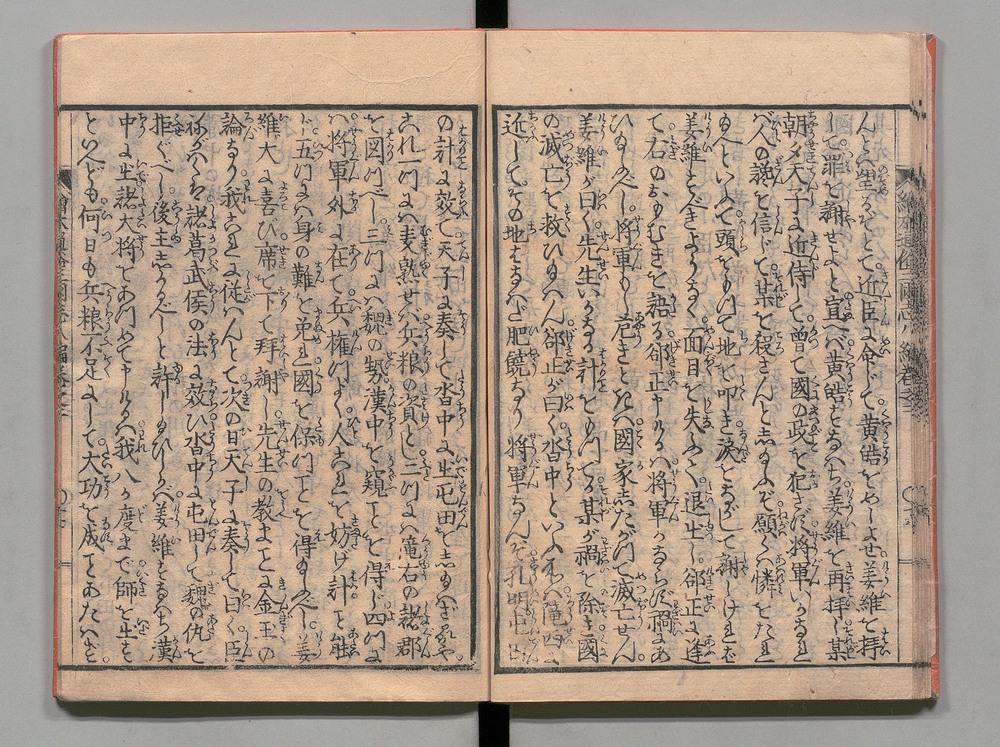 んとへ里るぞとて近臣に命じて黄皓をめしよせ姜維を拝
して罪を謝せよと宣へバ黄皓すなハち姜維を再拝し某
朝夕天子に近侍して曽て國の政を犯さず将軍いかなれ
バ人の讒を信じて某を殺さんとし玉ふぞ願くハ憐をたれ
玉へといふて頭をもつて地を叩き涙をながして謝しけれバ
姜維すべきようなく面目を失ふて退出し郤正に逢
て右のおもむきを語る郤正申けるハ将軍かならず禍にあ
ひ玉ふべし将軍もし危きときハ國家したがつて滅亡せん
姜維が曰く先生いかなる計をもつてか某が禍を除き國
の滅亡を救ひ玉ハん郤正が曰く沓中といふ所ハ隴西に
近してその地はなハだ肥饒なり将軍なんぞ孔明屯田
の計に效て天子に奏して沓中に屯田をし玉ハざるや
これ一つにハ麦熟せバ兵粮の資とし二つにハ隴右の諸郡
を図つべし三つにハ魏の勢漢中を窺ことを得ず四つに
ハ将軍外に在て兵権つよく人これを妨げ計こと能
ハず五つにハ身の難を免れ國を保つことを得玉ふべし姜
維大に喜び席を下て拝謝し先生の教まことに金玉の
論なり我これに従ハんとて次の日天子に奏して曰く臣
ねがハくハ諸葛武侯の法に效ひ沓中に屯田して魏の仇を
拒ぐべし後主しかるべしと許し玉ひしかバ姜維すなハち漢
中に出諸大将をあつめて申けるハ我八か度まで師を出す
といへども何日も兵粮不足にして大功を成ことあたハず